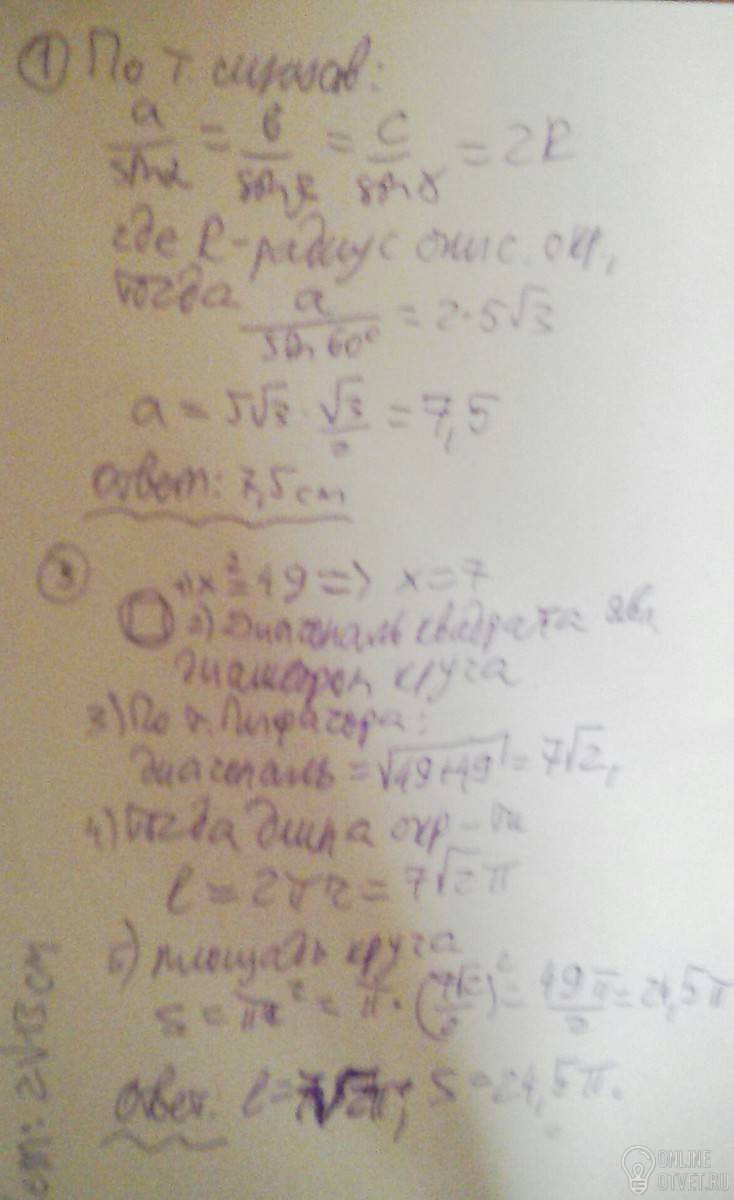 ① По т. синусов:
a/sinα = b/sinβ = c/sinγ = 2R
где R-радиус опис. окр.,
тогда a/sin 60° = 2·5√3
a = 5√3 · √3/2 = 7,5
Ответ: 7,5 см
③ 1) x² = 49 => x = 7
2) Диагональ квадрата явл
диаметром круга
3) По т. Пифагора:
диагональ = √49+49 = 7√2,
4) Тогда длина окр-ти
l = 2πr = 7√2π
5) площадь круга
S = πr² = π·(7√2/2)² = 49π/2 = 24,5π
Ответ: l = 7√2π; S = 24,5π.
ет: 2√13 см
ONLINE
OTVET.RU